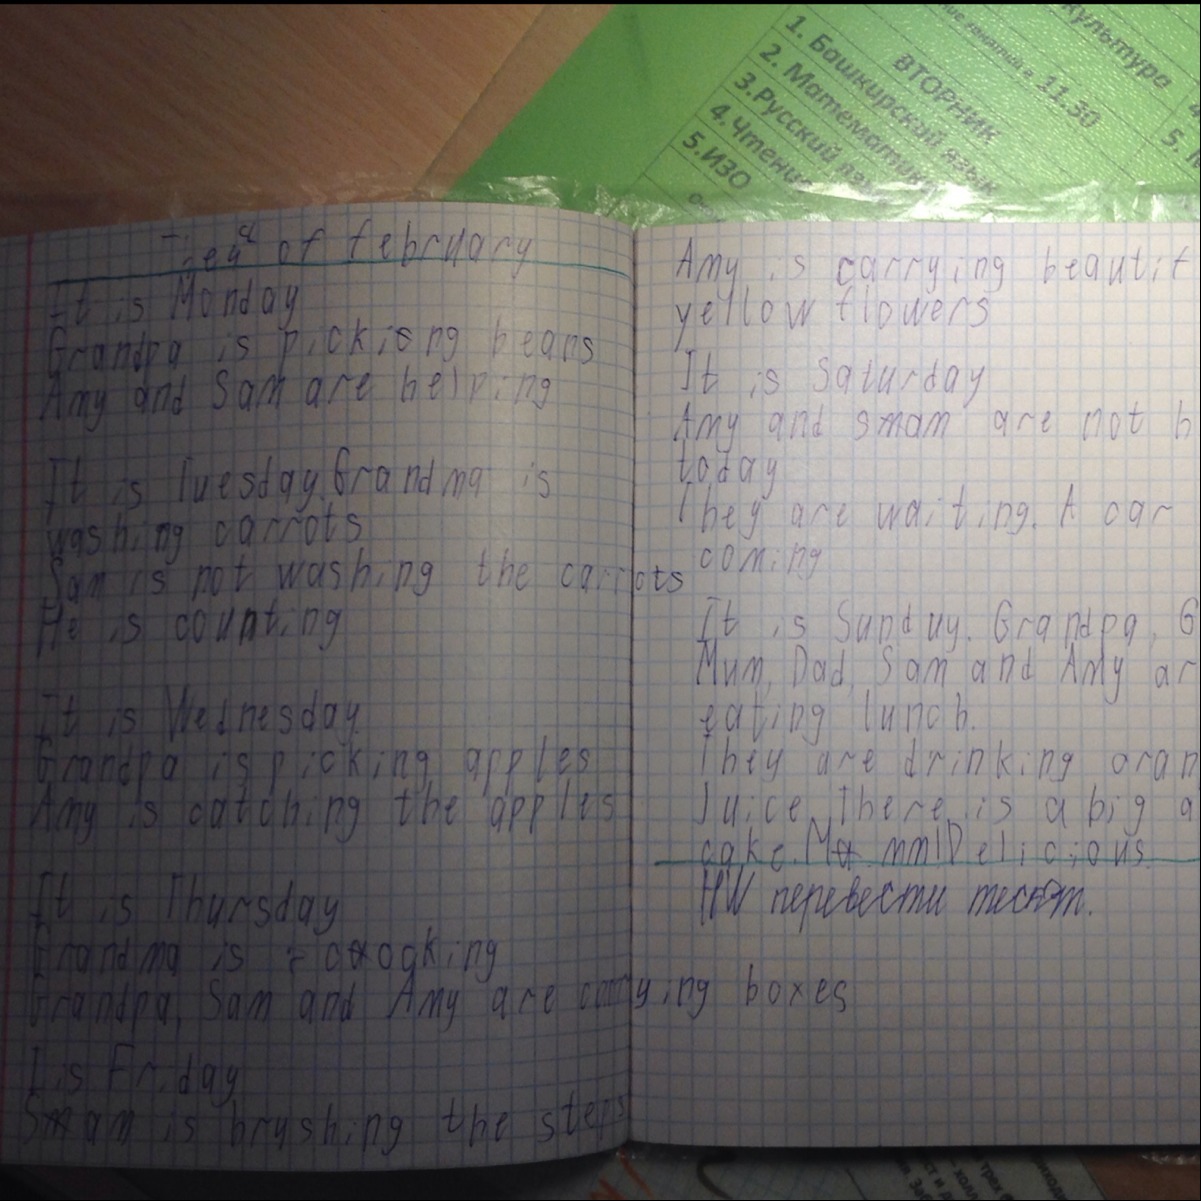 культуре
11.30
ВТОРНИК
1. Башкирский язык
2. Математика
3.Русский
4.Чтение
5.ИЗО
5.
of february
It is Monday
Grandpa is pickiong beans
Amy and Sam are helping
It is Tuesday.Grandma is
washing carrots
Sam is not washing the carrots
He is counting
It is Wednesday.
Grandpa is picking apples
Amy is catching the apples
It is Thursday
Grandma is
Grandpa, Sam and Amy are carrying boxes
I is Friday
Smam is brushing the steps
Amy is carrying beautif
yellow flowers
It is Saturday
Amy and smam are not h
today
They are waiting. A car
coming
It is Sunduy. Grandpa, G
Mum, Dad, Sam and Amy ar
eating lunch.
They are drinking oran
Juice.There is a big a
cake. mm!Delicious.
HW перевести текст.